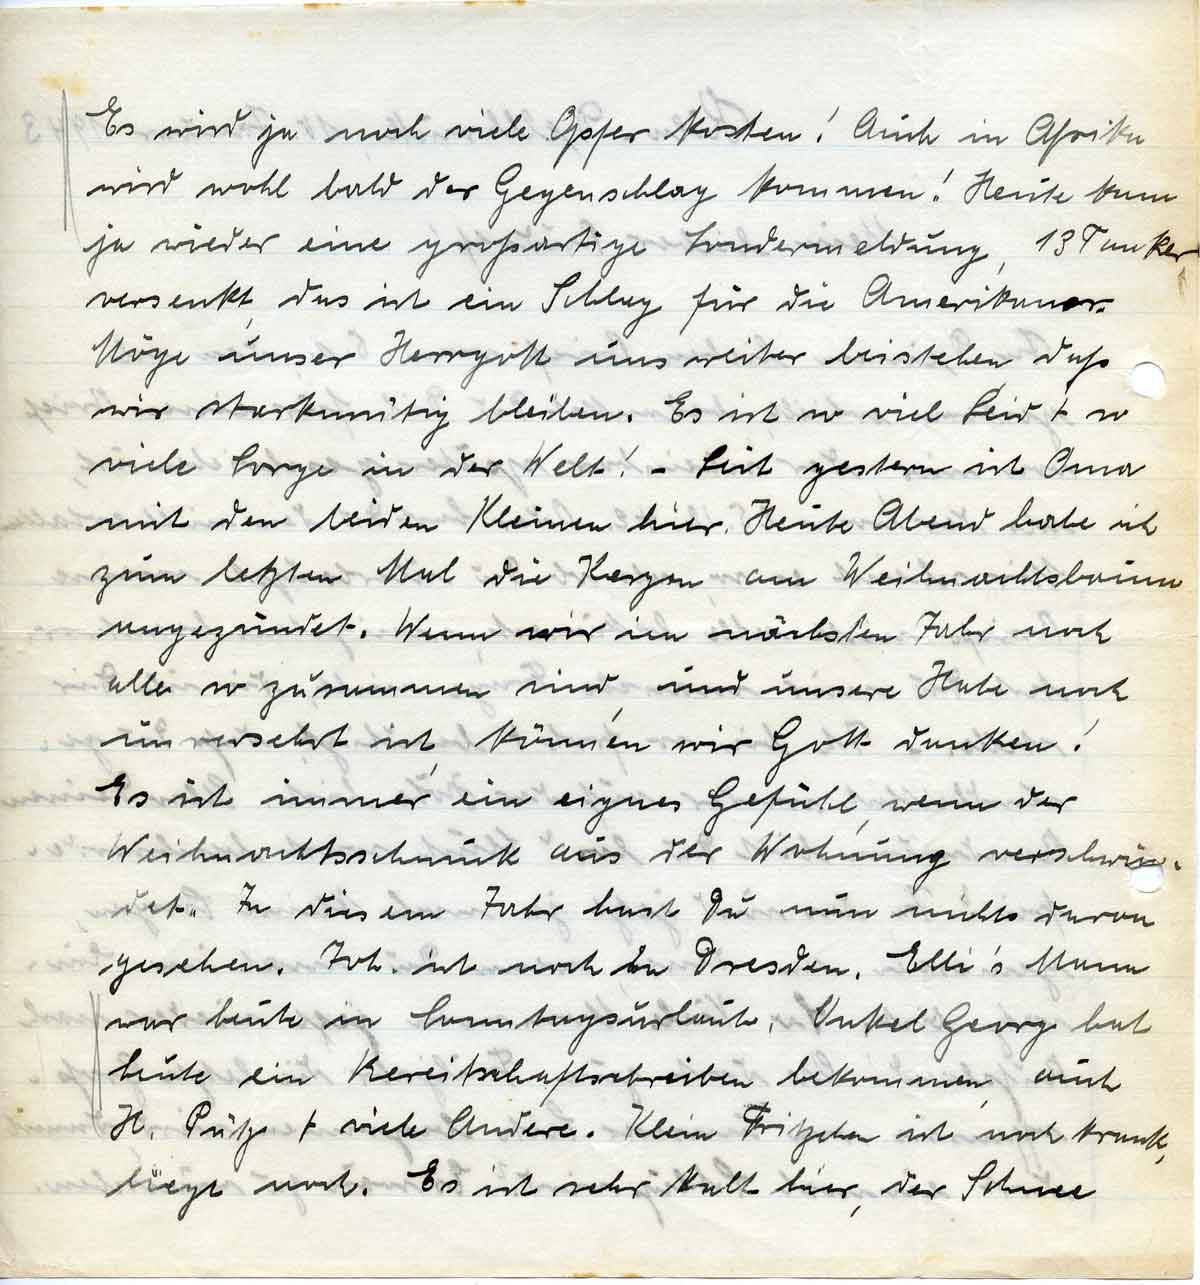 Es wird ja noch viele Opfer kosten! Auch in Afrika
wird wohl bald der Gegenschlag kommen! Heute kam
ja wieder eine großartige Sondermeldung, 13 Tanker
versenkt, das ist ein Schlag für die Amerikaner.
Möge unser Herrgott uns weiter beistehen daß
wir starkmütig bleiben. Es ist so viel Leid + so
viele Sorge in der Welt! - Seit gestern ist Oma
mit den beiden Kleinen hier. Heute Abend habe ich
zum letzten Mal die Kerzen am Weihnachtsbaum
angezündet. Wenn wir im nächsten Jahr noch
alle so zusammen sind, und unsere Habe noch
unversehrt ist, können wir Gott danken!
Es ist immer ein eignes Gefühl, wenn der
Weihnachtsschmuck aus der Wohnung verschwin-
det. In diesem Jahr hast Du nun nichts davon
gesehen. Joh. ist noch in Dresden. Elli's Mann
war heute in Sonntagsurlaub. Onkel Georg hat
heute ein Bereitschaftsschreiben bekommen, auch
H. Pütz + viele Andere. Klein Fritzchen ist noch krank,
liegt noch. Es ist sehr kalt hier, der Schnee